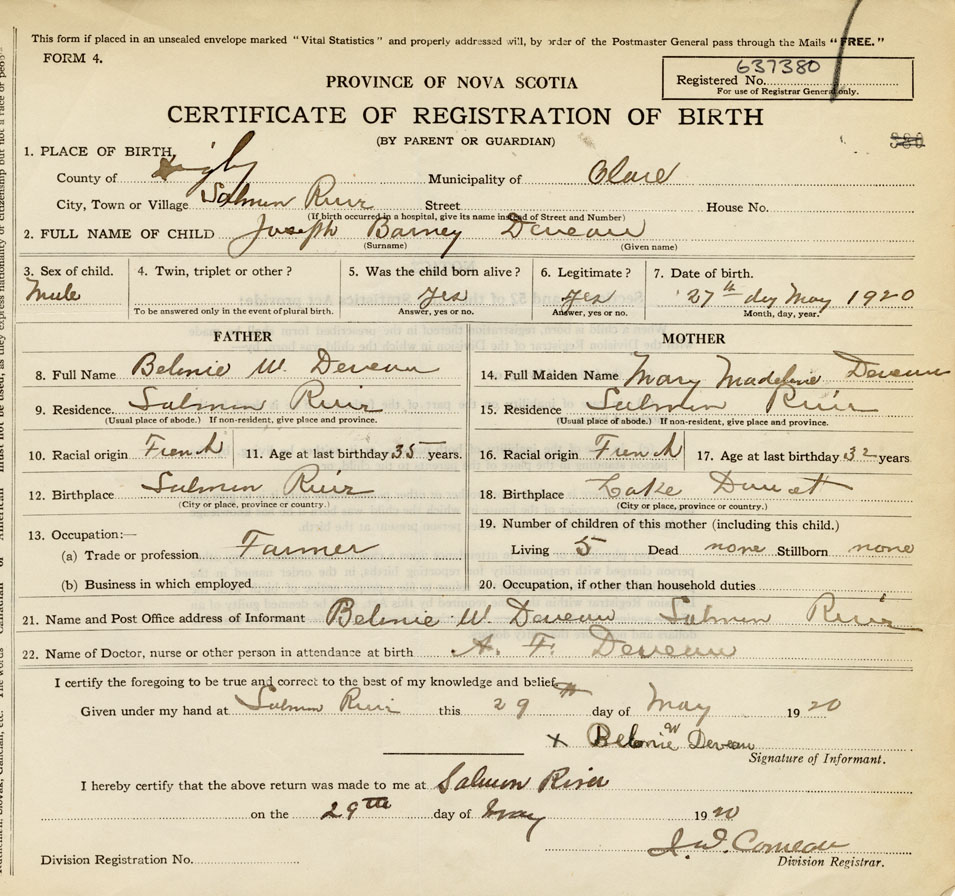 This form if placed in an unsealed envelope marked "Vital Statistics" and properly addressed will, by order of the Postmaster General pass through the Mails "FREE."
FORM 4.
637380
Registered No.
For use of Registrar General only.
PROVINCE OF NOVA SCOTIA
CERTIFICATE OF REGISTRATION OF BIRTH
(BY PARENT OR GUARDIAN)
380
1. PLACE OF BIRTH,
County of Digby Municipality of Clare
City, Town or Village Salmon River Street House No.
(If birth occurred in a hospital, give its name instead of Street and Number)
2. FULL NAME OF CHILD Joseph Barney Deveau
(Surname) (Given name)
3. Sex of child. 4. Twin, triplet or other? 5. Was the child born alive? 6. Legitimate? 7. Date of birth.
Male yes yes 27th day May 1920
To be answered only in the event of plural birth. Answer, yes or no. Answer, yes or no. Month, day, year.
FATHER MOTHER
8. Full Name Belonie W. Deveau 14. Full Maiden Name Mary Madeline Deveau
9. Residence. Salmon River 15. Residence Salmon River
(Usual place of abode.) If non-resident, give place and province. (Usual place of abode.) If non-resident, give place and province.
10. Racial origin French 11. Age at last birthday 35 years. 16. Racial origin French 17. Age at last birthday 32 years
12. Birthplace Salmon River 18. Birthplace Lake
(City or place, province or country.) (City or place, province or country.)
13. Occupation:— 19. Number of children of this mother (including this child.)
(a) Trade or profession Farmer Living 5 Dead none Stillborn none
(b) Business in which employed 20. Occupation, if other than household duties
21. Name and Post Office address of Informant Belonie W. Deveau Salmon River
22. Name of Doctor, nurse or other person in attendance at birth A. F. Deveau
I certify the foregoing to be true and correct to the best of my knowledge and belief.
Given under my hand at Salmon River this 29th day of May 1920
x Belonie W Deveau
Signature of Informant.
I hereby certify that the above return was made to me at Salmon River
on the 29th day of May 1920
J. W. Comeau
Division Registration No. Division Registrar.